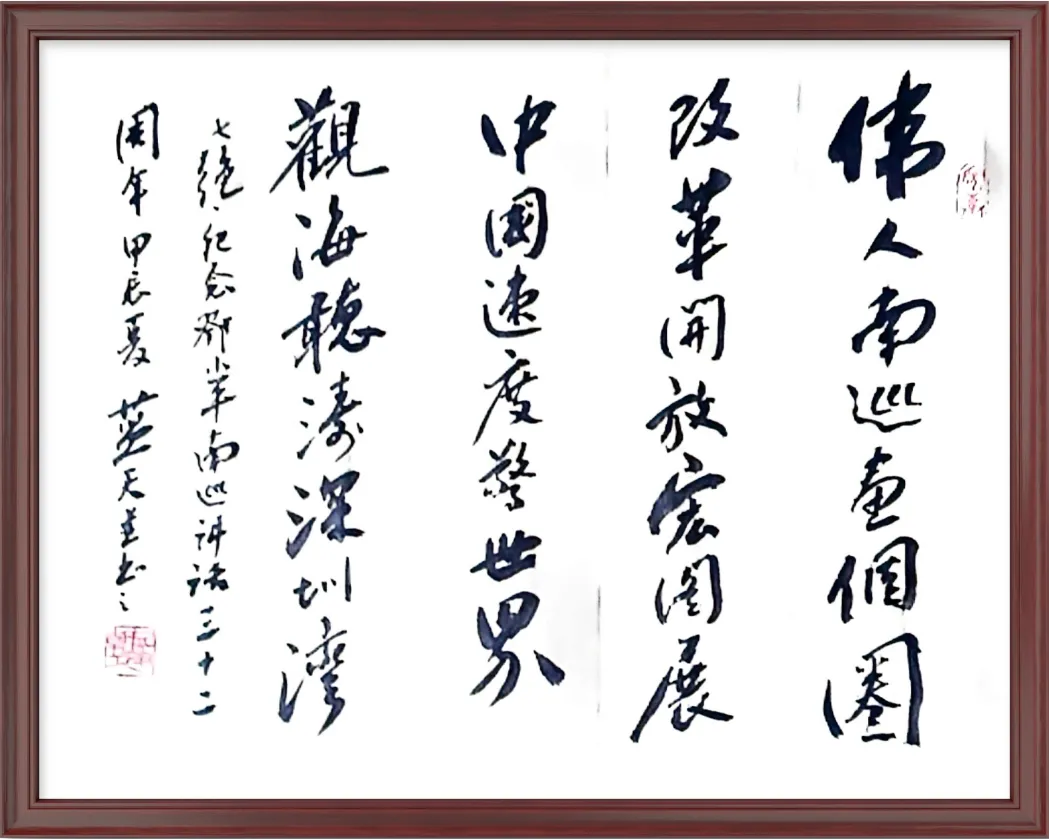 偉人南巡畫個圈
改革開放宏图展
中國速度驚世界
觀海聽濤深圳灣
七絕、纪念邓小平南巡讲话三十二
周年甲辰夏 蓝天并书之